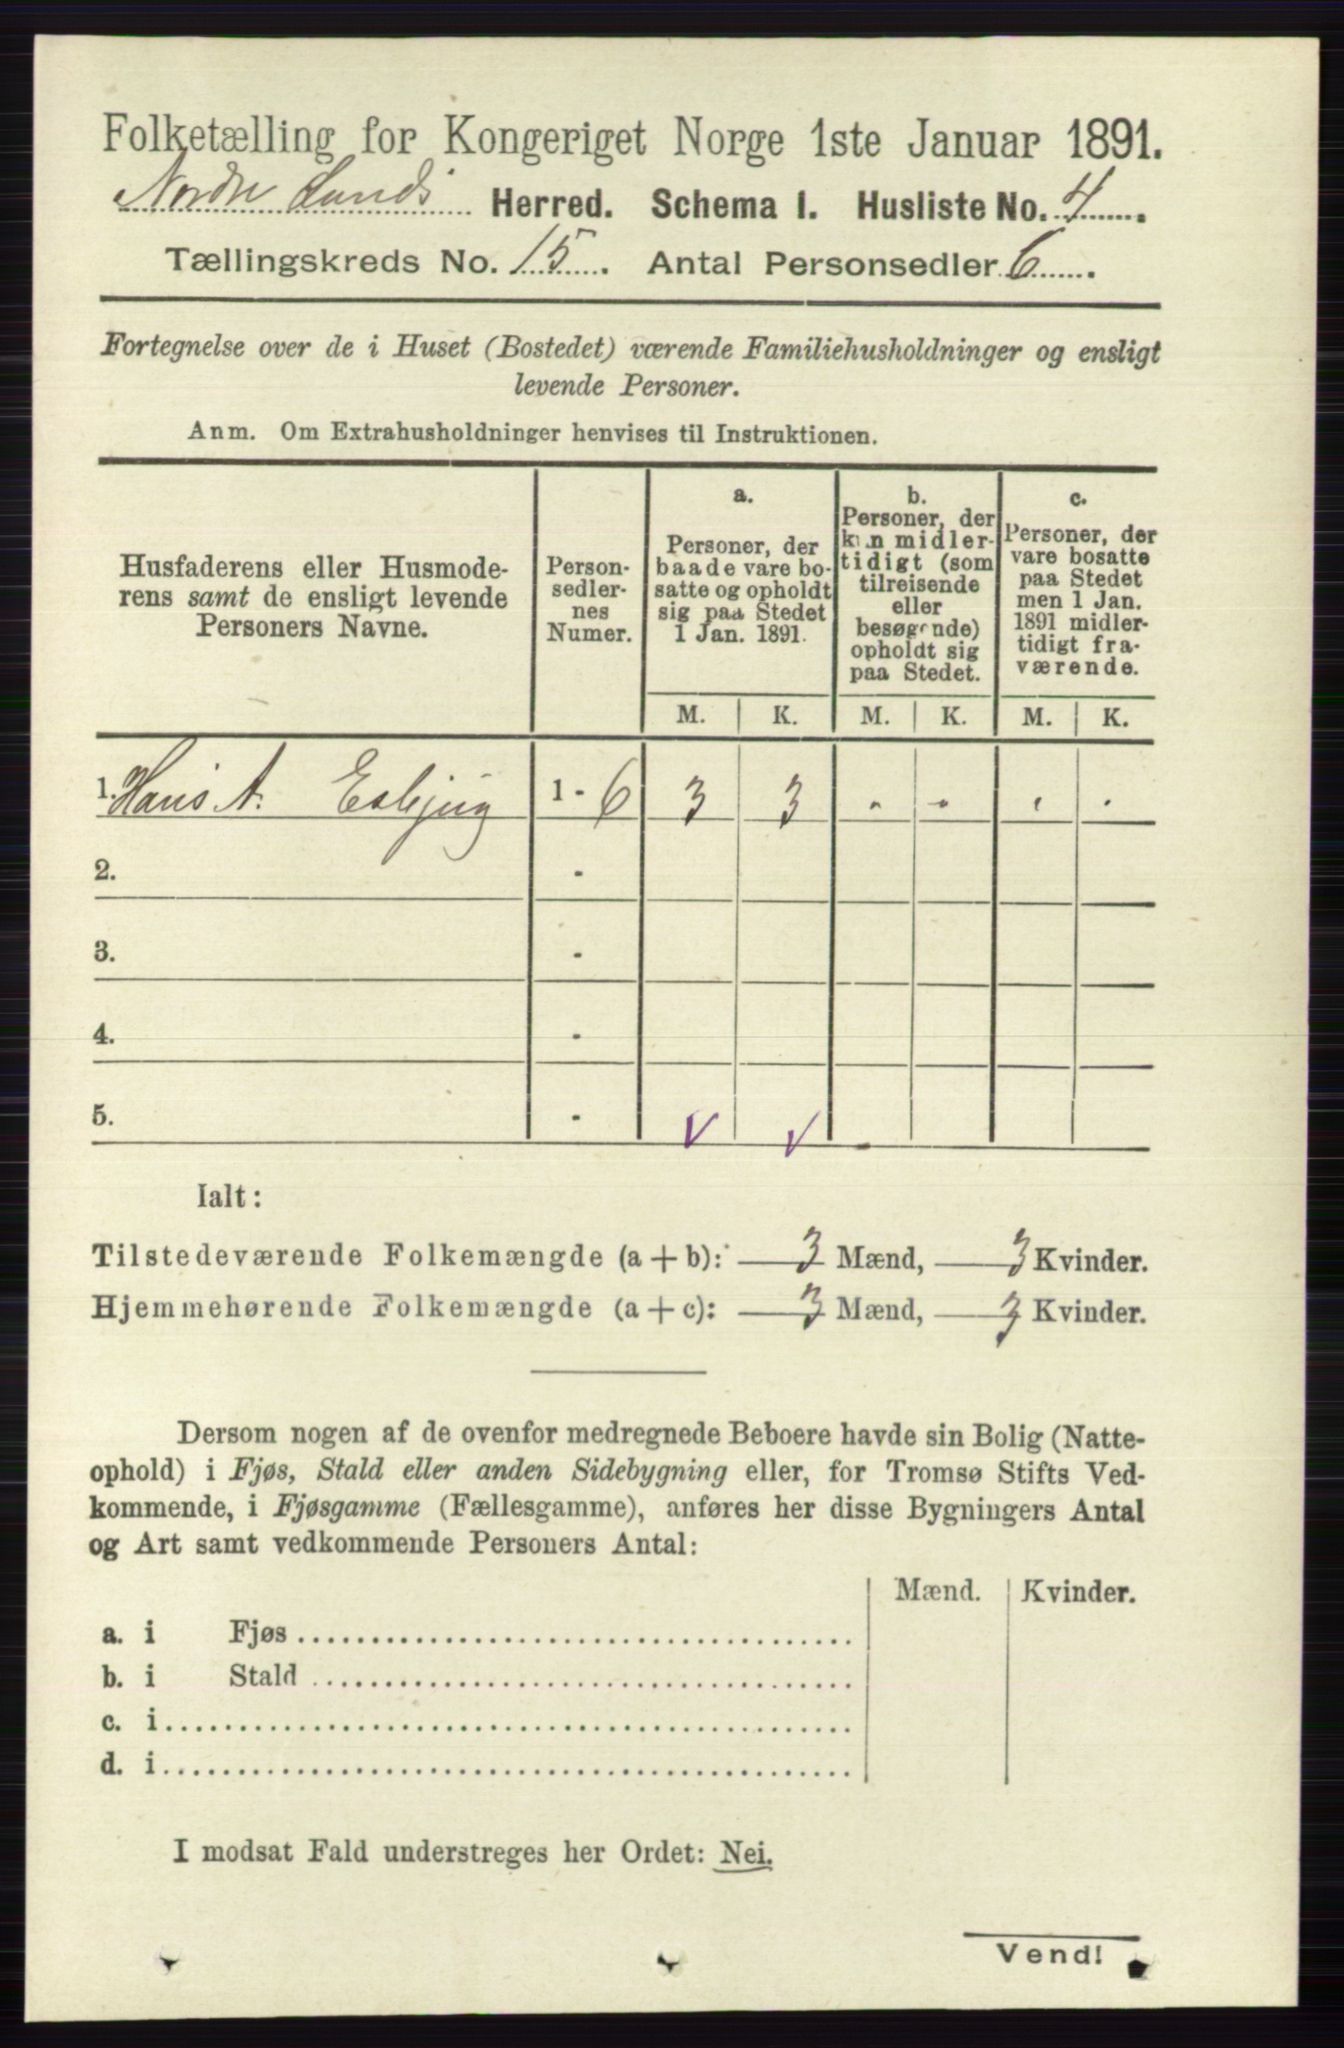 Folketælling for Kongeriget Norge 1ste Januar 1891.
Nordre Lands Herred. Schema I. Husliste No. 4.
Tællingskreds No. 15. Antal Personsedler 6.
Fortegnelse over de i Huset (Bostedet) værende Familiehusholdninger og ensligt
levende Personer.
Anm. Om Extrahusholdninger henvises til Instruktionen.
Husfaderens eller Husmode-
rens samt de ensligt levende
Personers Navne.
Person-
sedler-
nes
Numer.
a.
Personer, der
baade vare bo-
satte og opholdt
sig paa Stedet
1 Jan. 1891.
b.
Personer, der
kun midler-
tidigt (som
tilreisende
eller
besøgende)
opholdt sig
paa Stedet.
c.
Personer, der
vare bosatte
paa Stedet
men 1 Jan.
1891 midler-
tidigt fra-
værende.
M. K. M. K. M. K.
1. Hans A. 1 - 6 3 3 - - - -
2. -
3. -
4. -
5. - V V
Ialt:
Tilstedeværende Folkemængde (a + b): 3 Mænd, 3 Kvinder.
Hjemmehørende Folkemængde (a + c): 3 Mænd, 3 Kvinder.
Dersom nogen af de ovenfor medregnede Beboere havde sin Bolig (Natte-
ophold) i Fjøs, Stald eller anden Sidebygning eller, for Tromsø Stifts Ved-
kommende, i Fjøsgamme (Fællesgamme), anføres her disse Bygningers Antal
og Art samt vedkommende Personers Antal:
Mænd. Kvinder.
a. i Fjøs
b. i Stald
c. i
d. i
I modsat Fald understreges her Ordet: Nei.
Vend!